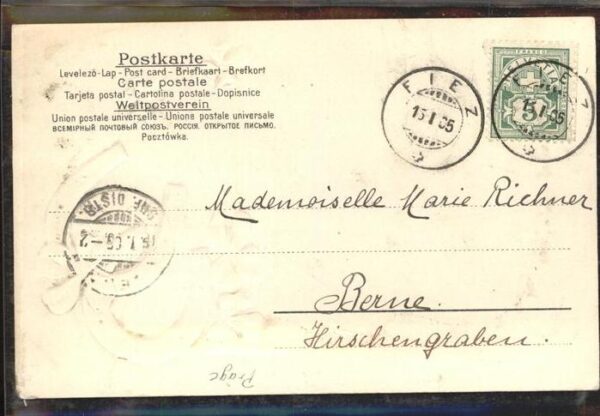 Postkarte
Levelező-Lap - Post card - Briefkaart - Brefkort
Carte postale
Tarjeta postal - Cartolina postale - Dopisnice
Weltpostverein
Union postale universelle - Unione postale universale
ВСЕМІРНЫЙ ПОЧТОВЫЙ СОЮЗЪ. РОССІЯ. ОТКРЫТОЕ ПИСЬМО.
Pocztówka.
FIEZ
15 I 05
HELVETIA
FRANCO
5
FIEZ
15 I 05
DISTR.
Mademoiselle Marie Richner
Berne.
Hirschengraben.
Präge